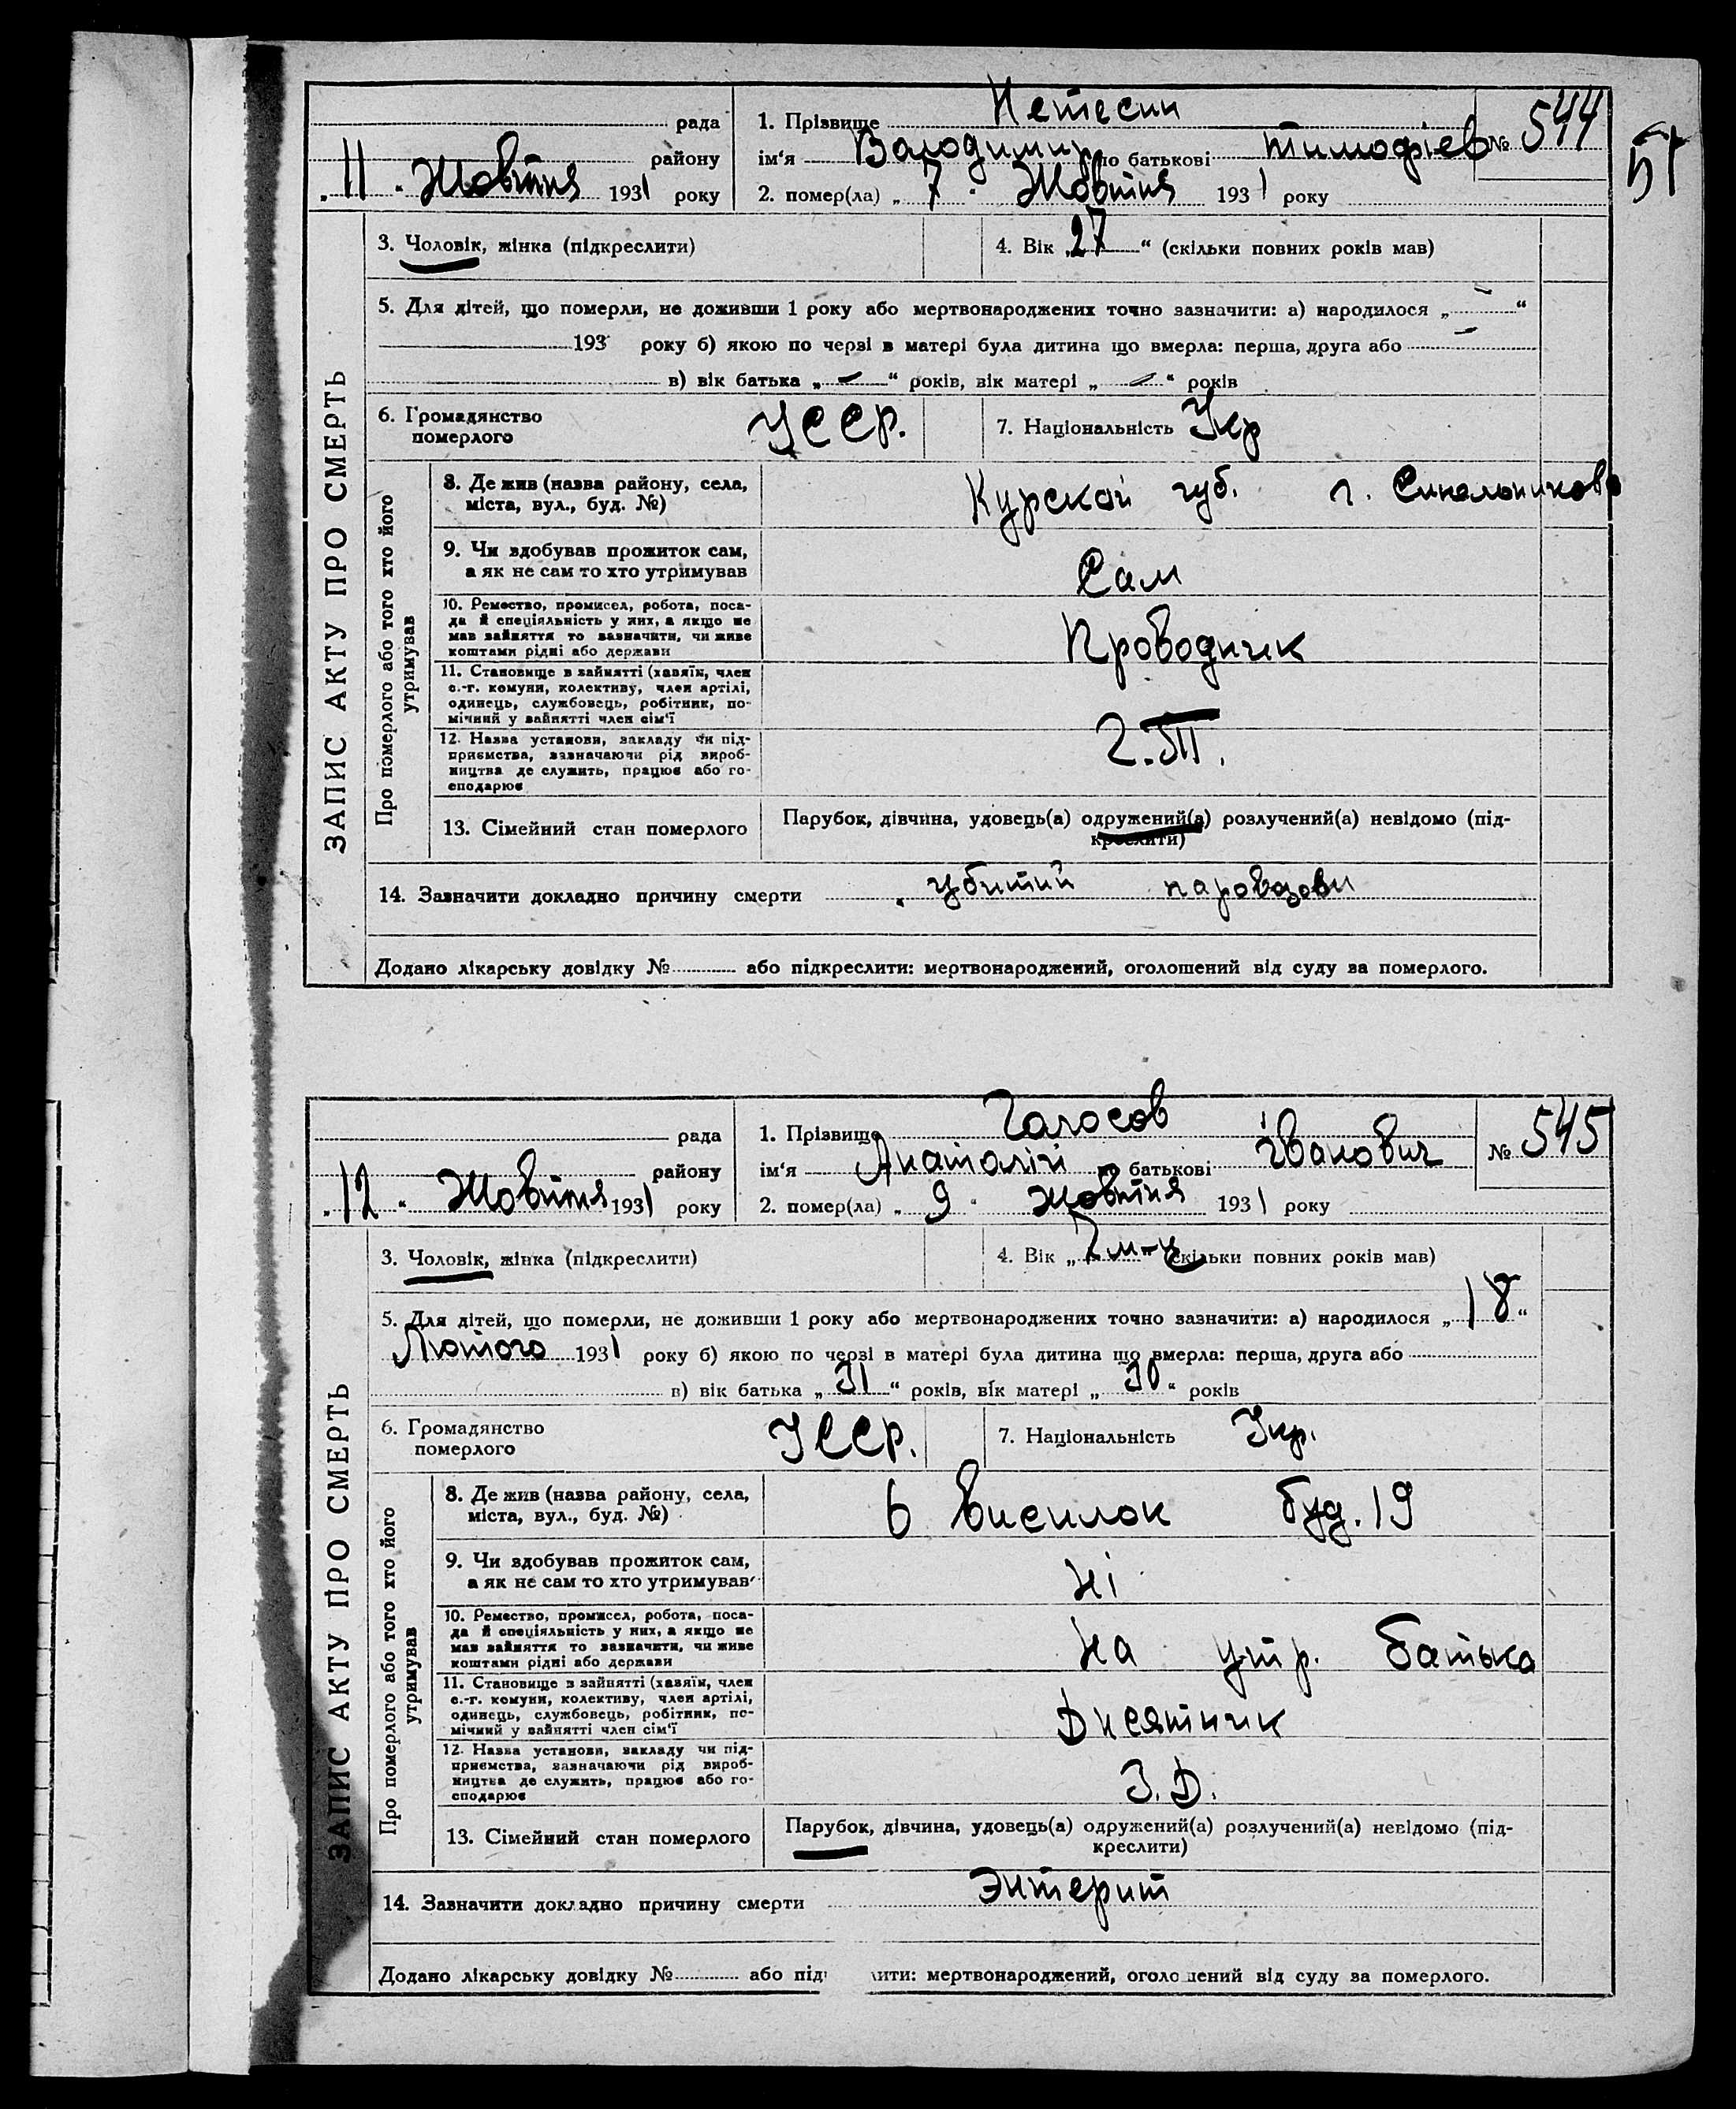 57
ЗАПИС АКТУ ПРО СМЕРТЬ
рада
району
„ 11 “ Жовтня 1931 року
1. Прізвище Нетесин № 544
ім‘я Володимир по батькові Тимофієв
2. помер(ла) „ 7 “ Жовтня 1931 року
3. Чоловік, жінка (підкреслити)
4. Вік „ 27 “ (скільки повних років мав)
5. Для дітей, що померли, не доживши 1 року або мертвонароджених точно зазначити: а) народилося „ — “
193 року б) якою по черзі в матері була дитина що вмерла: перша, друга або —
в) вік батька „ — “ років, вік матері „ — “ років
6. Громадянство померлого УССР.
7. Національність Укр
Про померлого або того хто його утримував
8. Де жив (назва району, села, міста, вул., буд. №) Курской губ. г. Синельниково
9. Чи здобував прожиток сам, а як не сам то хто утримував Сам
10. Ремество, промисел, робота, посада й спеціяльність у них, а якщо не мав зайняття то зазначити, чи живе коштами рідні або держави Проводник
11. Становище в зайнятті (хазяїн, член с.-г. комуни, колективу, член артілі, одинець, службовець, робітник, помічний у зайнятті член сім‘ї
12. Назва установи, закладу чи підприємства, зазначаючи рід виробництва де служить, працює або господарює
13. Сімейний стан померлого Парубок, дівчина, удовець(а) одружений(а) розлучений(а) невідомо (підкреслити)
14. Зазначити докладно причину смерти убитий паровозови
Додано лікарську довідку № або підкреслити: мертвонароджений, оголошений від суду за померлого.
ЗАПИС АКТУ ПРО СМЕРТЬ
рада
району
„ 12 “ Жовтня 1931 року
1. Прізвище Голосов № 545
ім‘я Анатолій по батькові Іванович
2. помер(ла) „ 9 “ жовтня 1931 року
3. Чоловік, жінка (підкреслити)
4. Вік „ 7 м-ц (скільки повних років мав)
5. Для дітей, що померли, не доживши 1 року або мертвонароджених точно зазначити: а) народилося „ 18 “
Лютого 1931 року б) якою по черзі в матері була дитина що вмерла: перша, друга або
в) вік батька „ 31 “ років, вік матері „ 30 “ років
6. Громадянство померлого УССР.
7. Національність Укр.
Про померлого або того хто його утримував
8. Де жив (назва району, села, міста, вул., буд. №) 6 висилок буд. 19
9. Чи здобував прожиток сам, а як не сам то хто утримував Ні
10. Ремество, промисел, робота, посада й спеціяльність у них, а якщо не мав зайняття то зазначити, чи живе коштами рідні або держави На утр. батька
11. Становище в зайнятті (хазяїн, член с.-г. комуни, колективу, член артілі, одинець, службовець, робітник, помічний у зайнятті член сім‘ї Дисятник
12. Назва установи, закладу чи підприємства, зазначаючи рід виробництва де служить, працює або господарює З.Д.
13. Сімейний стан померлого Парубок, дівчина, удовець(а) одружений(а) розлучений(а) невідомо (підкреслити)
14. Зазначити докладно причину смерти Энтерит
Додано лікарську довідку № або підк лити: мертвонароджений, оголошений від суду за померлого.